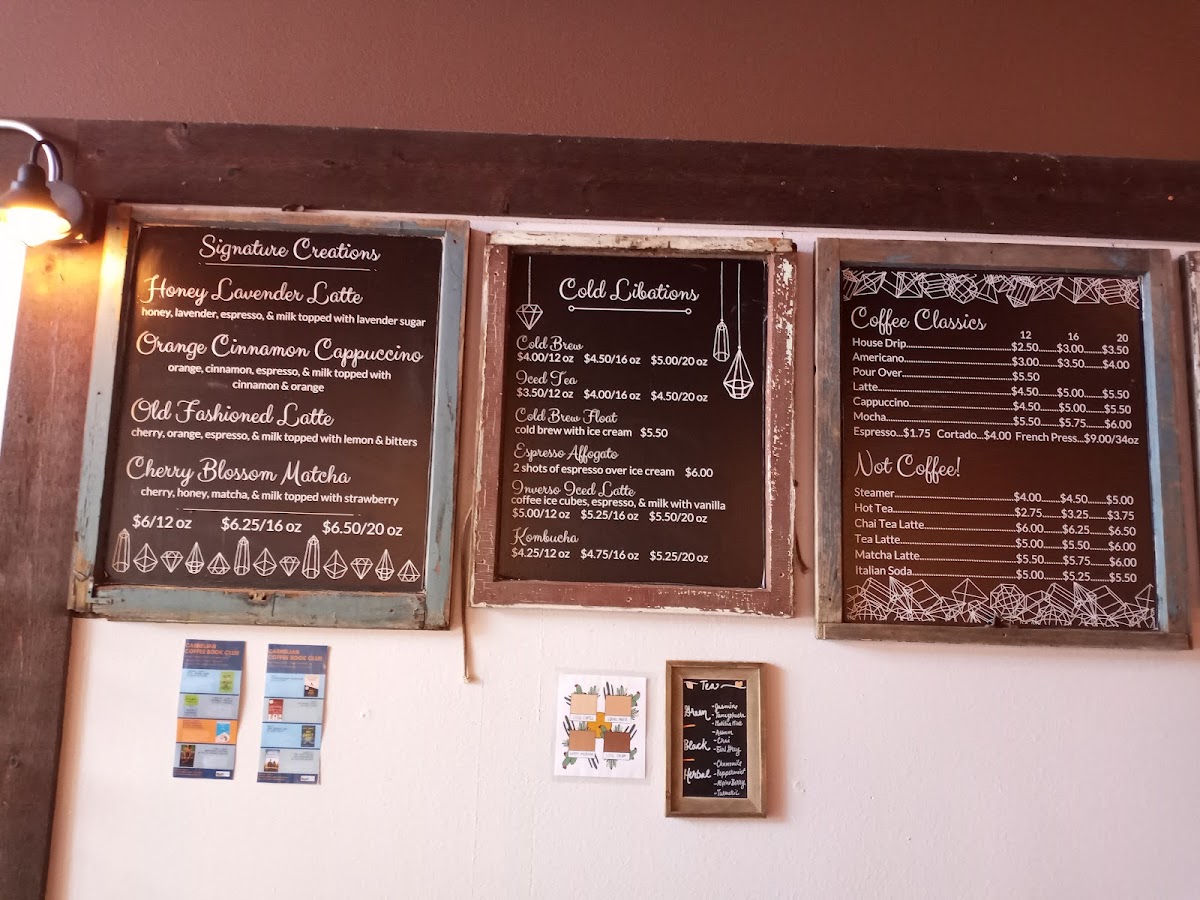 Signature Creations
Honey Lavender Latte
honey, lavender, espresso, & milk topped with lavender sugar
Orange Cinnamon Cappuccino
orange, cinnamon, espresso, & milk topped with
cinnamon & orange
Old Fashioned Latte
cherry, orange, espresso, & milk topped with lemon & bitters
Cherry Blossom Matcha
cherry, honey, matcha, & milk topped with strawberry
$6/12 oz $6.25/16 oz $6.50/20 oz
Cold Libations
Cold Brew
$4.00/12 oz $4.50/16 oz $5.00/20 oz
Iced Tea
$3.50/12 oz $4.00/16 oz $4.50/20 oz
Cold Brew Float
cold brew with ice cream $5.50
Espresso Affogato
2 shots of espresso over ice cream $6.00
Inverso Iced Latte
coffee ice cubes, espresso, & milk with vanilla
$5.00/12 oz $5.25/16 oz $5.50/20 oz
Kombucha
$4.25/12 oz $4.75/16 oz $5.25/20 oz
Coffee Classics
12 16 20
House Drip $2.50 $3.00 $3.50
Americano $3.00 $3.50 $4.00
Pour Over $5.50
Latte $4.50 $5.00 $5.50
Cappuccino $4.50 $5.00 $5.50
Mocha $5.50 $5.75 $6.00
Espresso...$1.75 Cortado...$4.00 French Press...$9.00/34oz
Not Coffee!
Steamer $4.00 $4.50 $5.00
Hot Tea $2.75 $3.25 $3.75
Chai Tea Latte $6.00 $6.25 $6.50
Tea Latte $5.00 $5.50 $6.00
Matcha Latte $5.50 $5.75 $6.00
Italian Soda $5.00 $5.25 $5.50
CARNELIAN
COFFEE BOOK CLUB
CARNELIAN
COFFEE BOOK CLUB
Tea
Green - Jasmine
Black - Assam
- Chai
- Earl Grey
Herbal - Chamomile
- Peppermint
- Turmeric